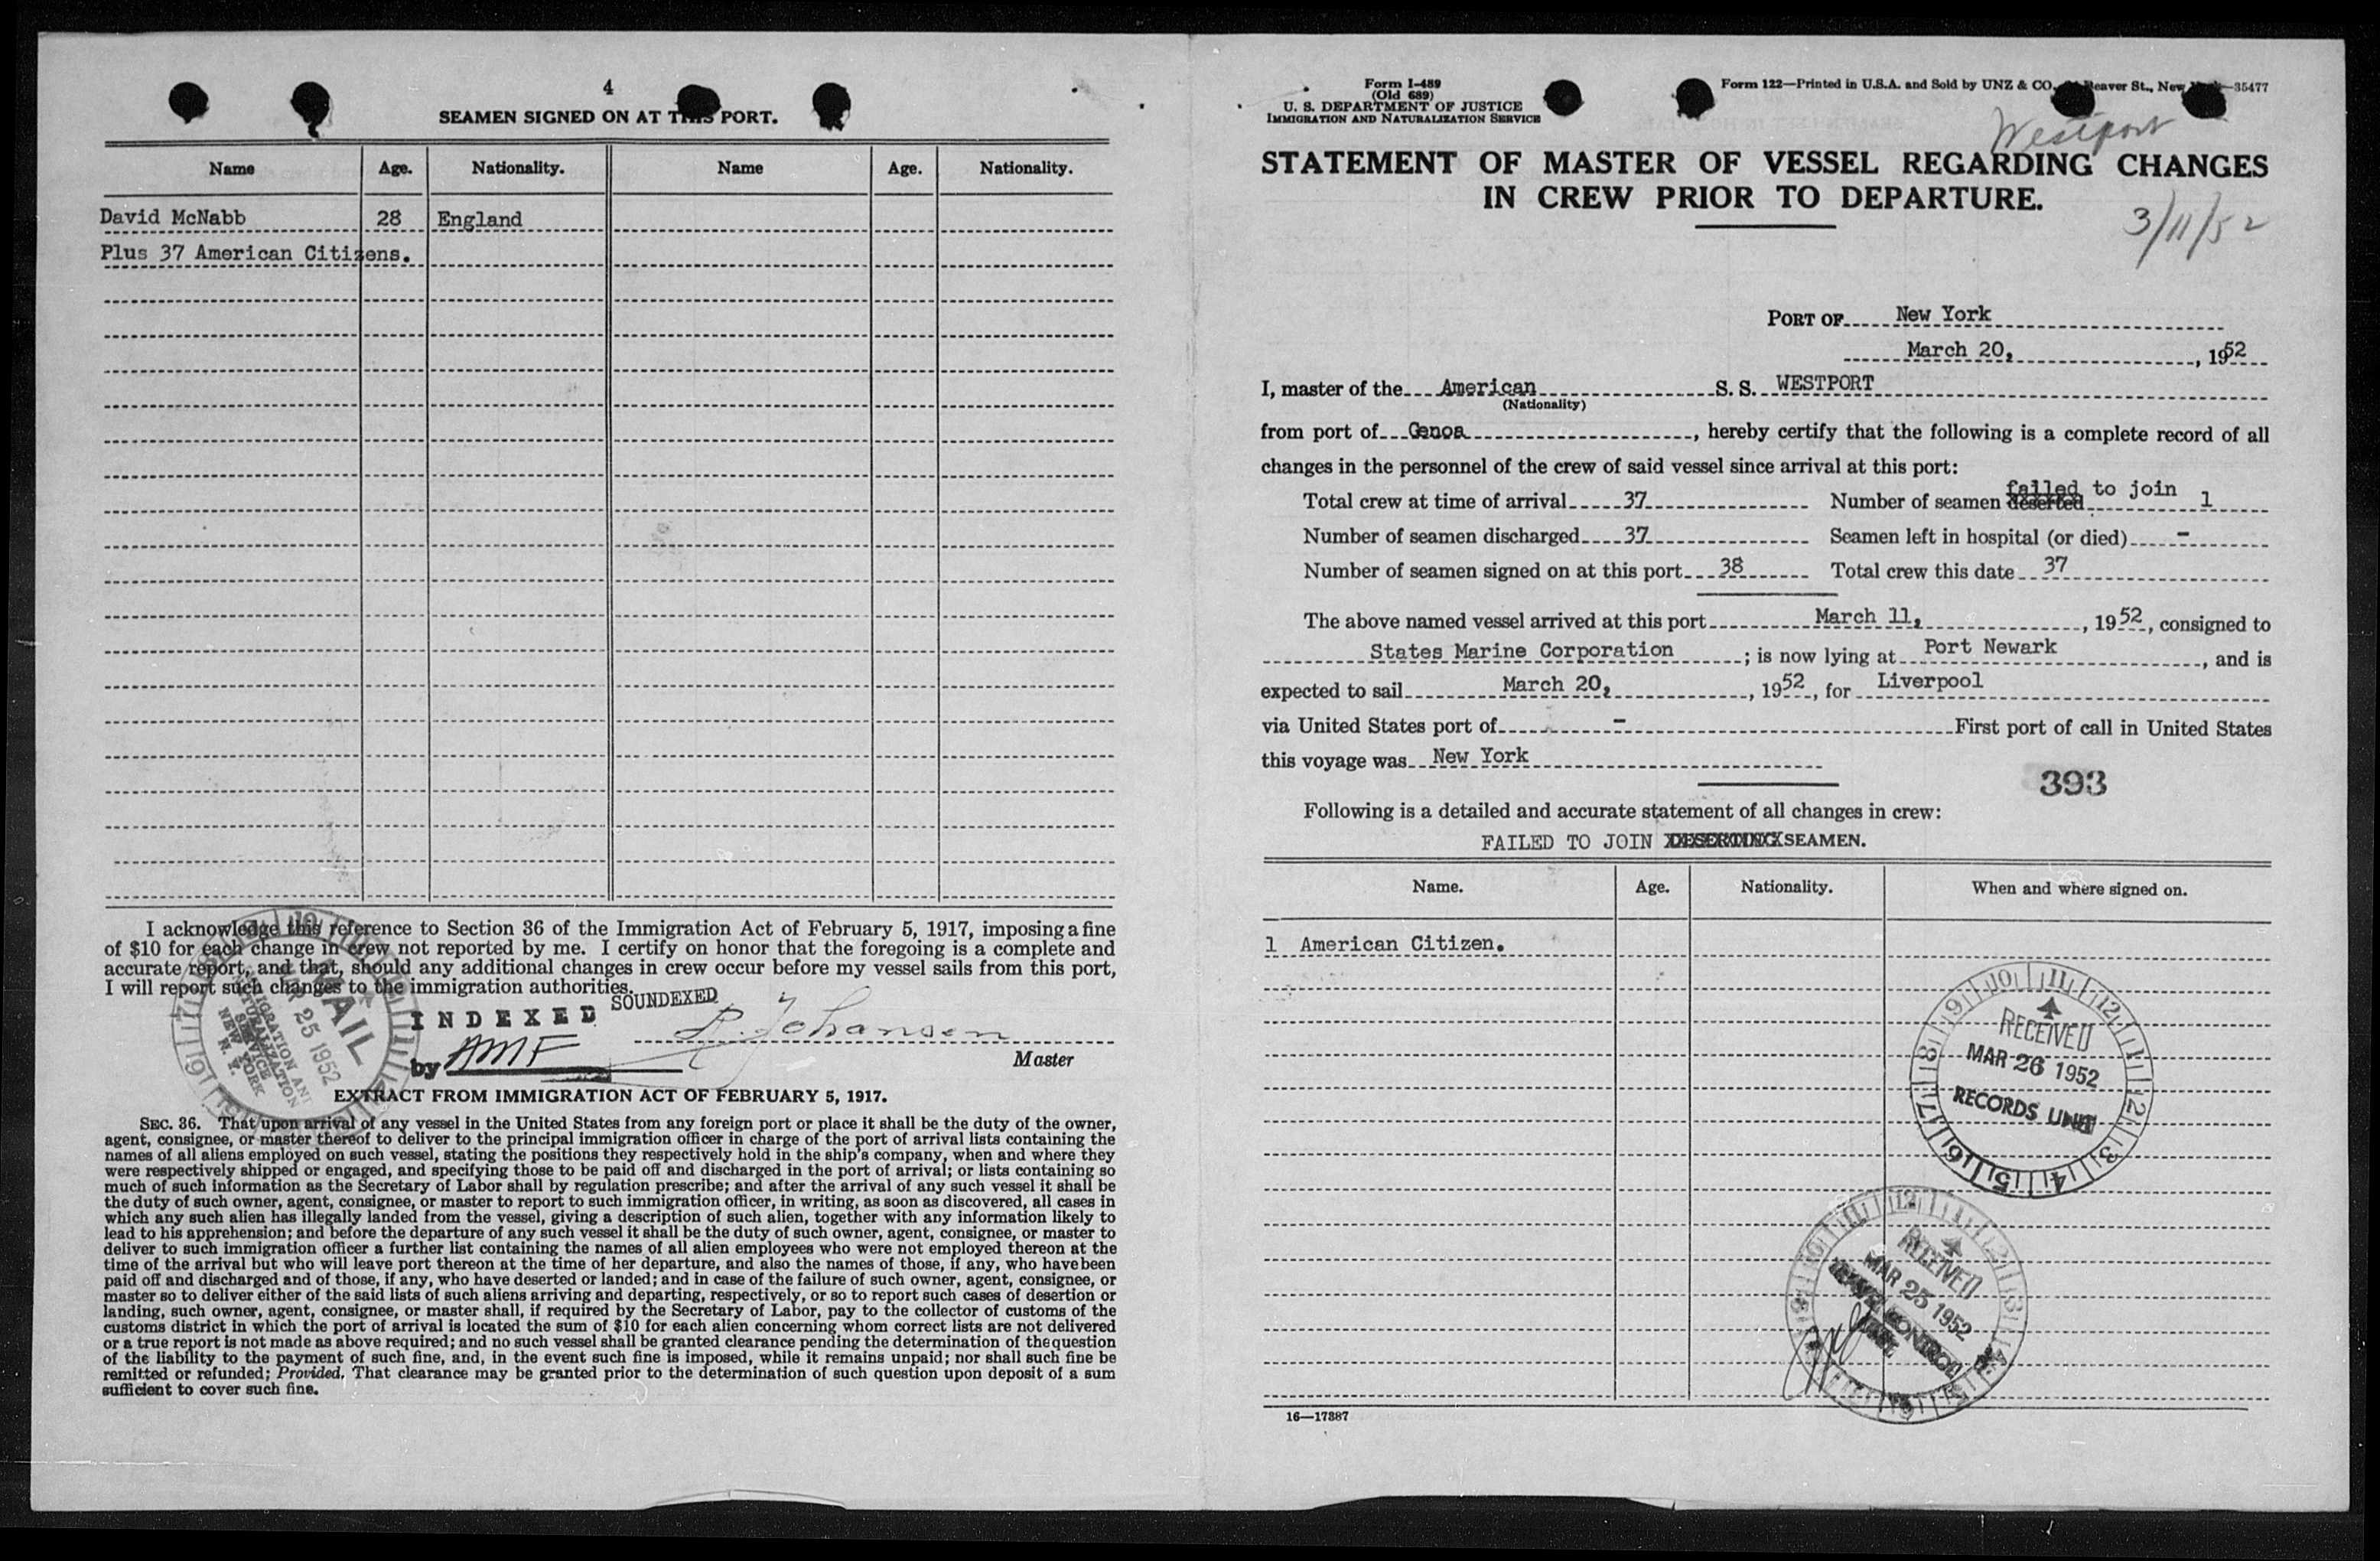 4
SEAMEN SIGNED ON AT THIS PORT.
Name Age. Nationality. Name Age. Nationality.
David McNabb 28 England
Plus 37 American Citizens.
I acknowledge this reference to Section 36 of the Immigration Act of February 5, 1917, imposing a fine
of $10 for each change in crew not reported by me. I certify on honor that the foregoing is a complete and
accurate report, and that, should any additional changes in crew occur before my vessel sails from this port,
I will report such changes to the immigration authorities.
INDEXED SOUNDEXED
by AMF
Johansen
Master
MAIL
MAR 25 1952
IMMIGRATION AND
NATURALIZATION
SERVICE
NEW YORK
N. Y.
EXTRACT FROM IMMIGRATION ACT OF FEBRUARY 5, 1917.
SEC. 36. That upon arrival of any vessel in the United States from any foreign port or place it shall be the duty of the owner,
agent, consignee, or master thereof to deliver to the principal immigration officer in charge of the port of arrival lists containing the
names of all aliens employed on such vessel, stating the positions they respectively hold in the ship's company, when and where they
were respectively shipped or engaged, and specifying those to be paid off and discharged in the port of arrival; or lists containing so
much of such information as the Secretary of Labor shall by regulation prescribe; and after the arrival of any such vessel it shall be
the duty of such owner, agent, consignee, or master to report to such immigration officer, in writing, as soon as discovered, all cases in
which any such alien has illegally landed from the vessel, giving a description of such alien, together with any information likely to
lead to his apprehension; and before the departure of any such vessel it shall be the duty of such owner, agent, consignee, or master to
deliver to such immigration officer a further list containing the names of all alien employees who were not employed thereon at the
time of the arrival but who will leave port thereon at the time of her departure, and also the names of those, if any, who have been
paid off and discharged and of those, if any, who have deserted or landed; and in case of the failure of such owner, agent, consignee, or
master so to deliver either of the said lists of such aliens arriving and departing, respectively, or so to report such cases of desertion or
landing, such owner, agent, consignee, or master shall, if required by the Secretary of Labor, pay to the collector of customs of the
customs district in which the port of arrival is located the sum of $10 for each alien concerning whom correct lists are not delivered
or a true report is not made as above required; and no such vessel shall be granted clearance pending the determination of the question
of the liability to the payment of such fine, and, in the event such fine is imposed, while it remains unpaid; nor shall such fine be
remitted or refunded; Provided, That clearance may be granted prior to the determination of such question upon deposit of a sum
sufficient to cover such fine.
Form I-489
(Old 689)
U. S. DEPARTMENT OF JUSTICE
IMMIGRATION AND NATURALIZATION SERVICE
Form 122—Printed in U.S.A. and Sold by UNZ & CO. Beaver St., New —35477
Westport
STATEMENT OF MASTER OF VESSEL REGARDING CHANGES
IN CREW PRIOR TO DEPARTURE.
3/11/52
PORT OF New York
March 20, , 1952
I, master of the American S. S. WESTPORT
(Nationality)
from port of Genoa , hereby certify that the following is a complete record of all
changes in the personnel of the crew of said vessel since arrival at this port:
Total crew at time of arrival 37 Number of seamen deserted failed to join 1
Number of seamen discharged 37 Seamen left in hospital (or died) -
Number of seamen signed on at this port 38 Total crew this date 37
The above named vessel arrived at this port March 11, , 1952, consigned to
States Marine Corporation ; is now lying at Port Newark , and is
expected to sail March 20, , 1952, for Liverpool
via United States port of - First port of call in United States
this voyage was New York
393
Following is a detailed and accurate statement of all changes in crew:
FAILED TO JOIN DESERTING SEAMEN.
Name. Age. Nationality. When and where signed on.
1 American Citizen.
RECEIVED
MAR 26 1952
RECORDS UNIT
RECEIVED
MAR 25 1952
CONTROL
16—17387